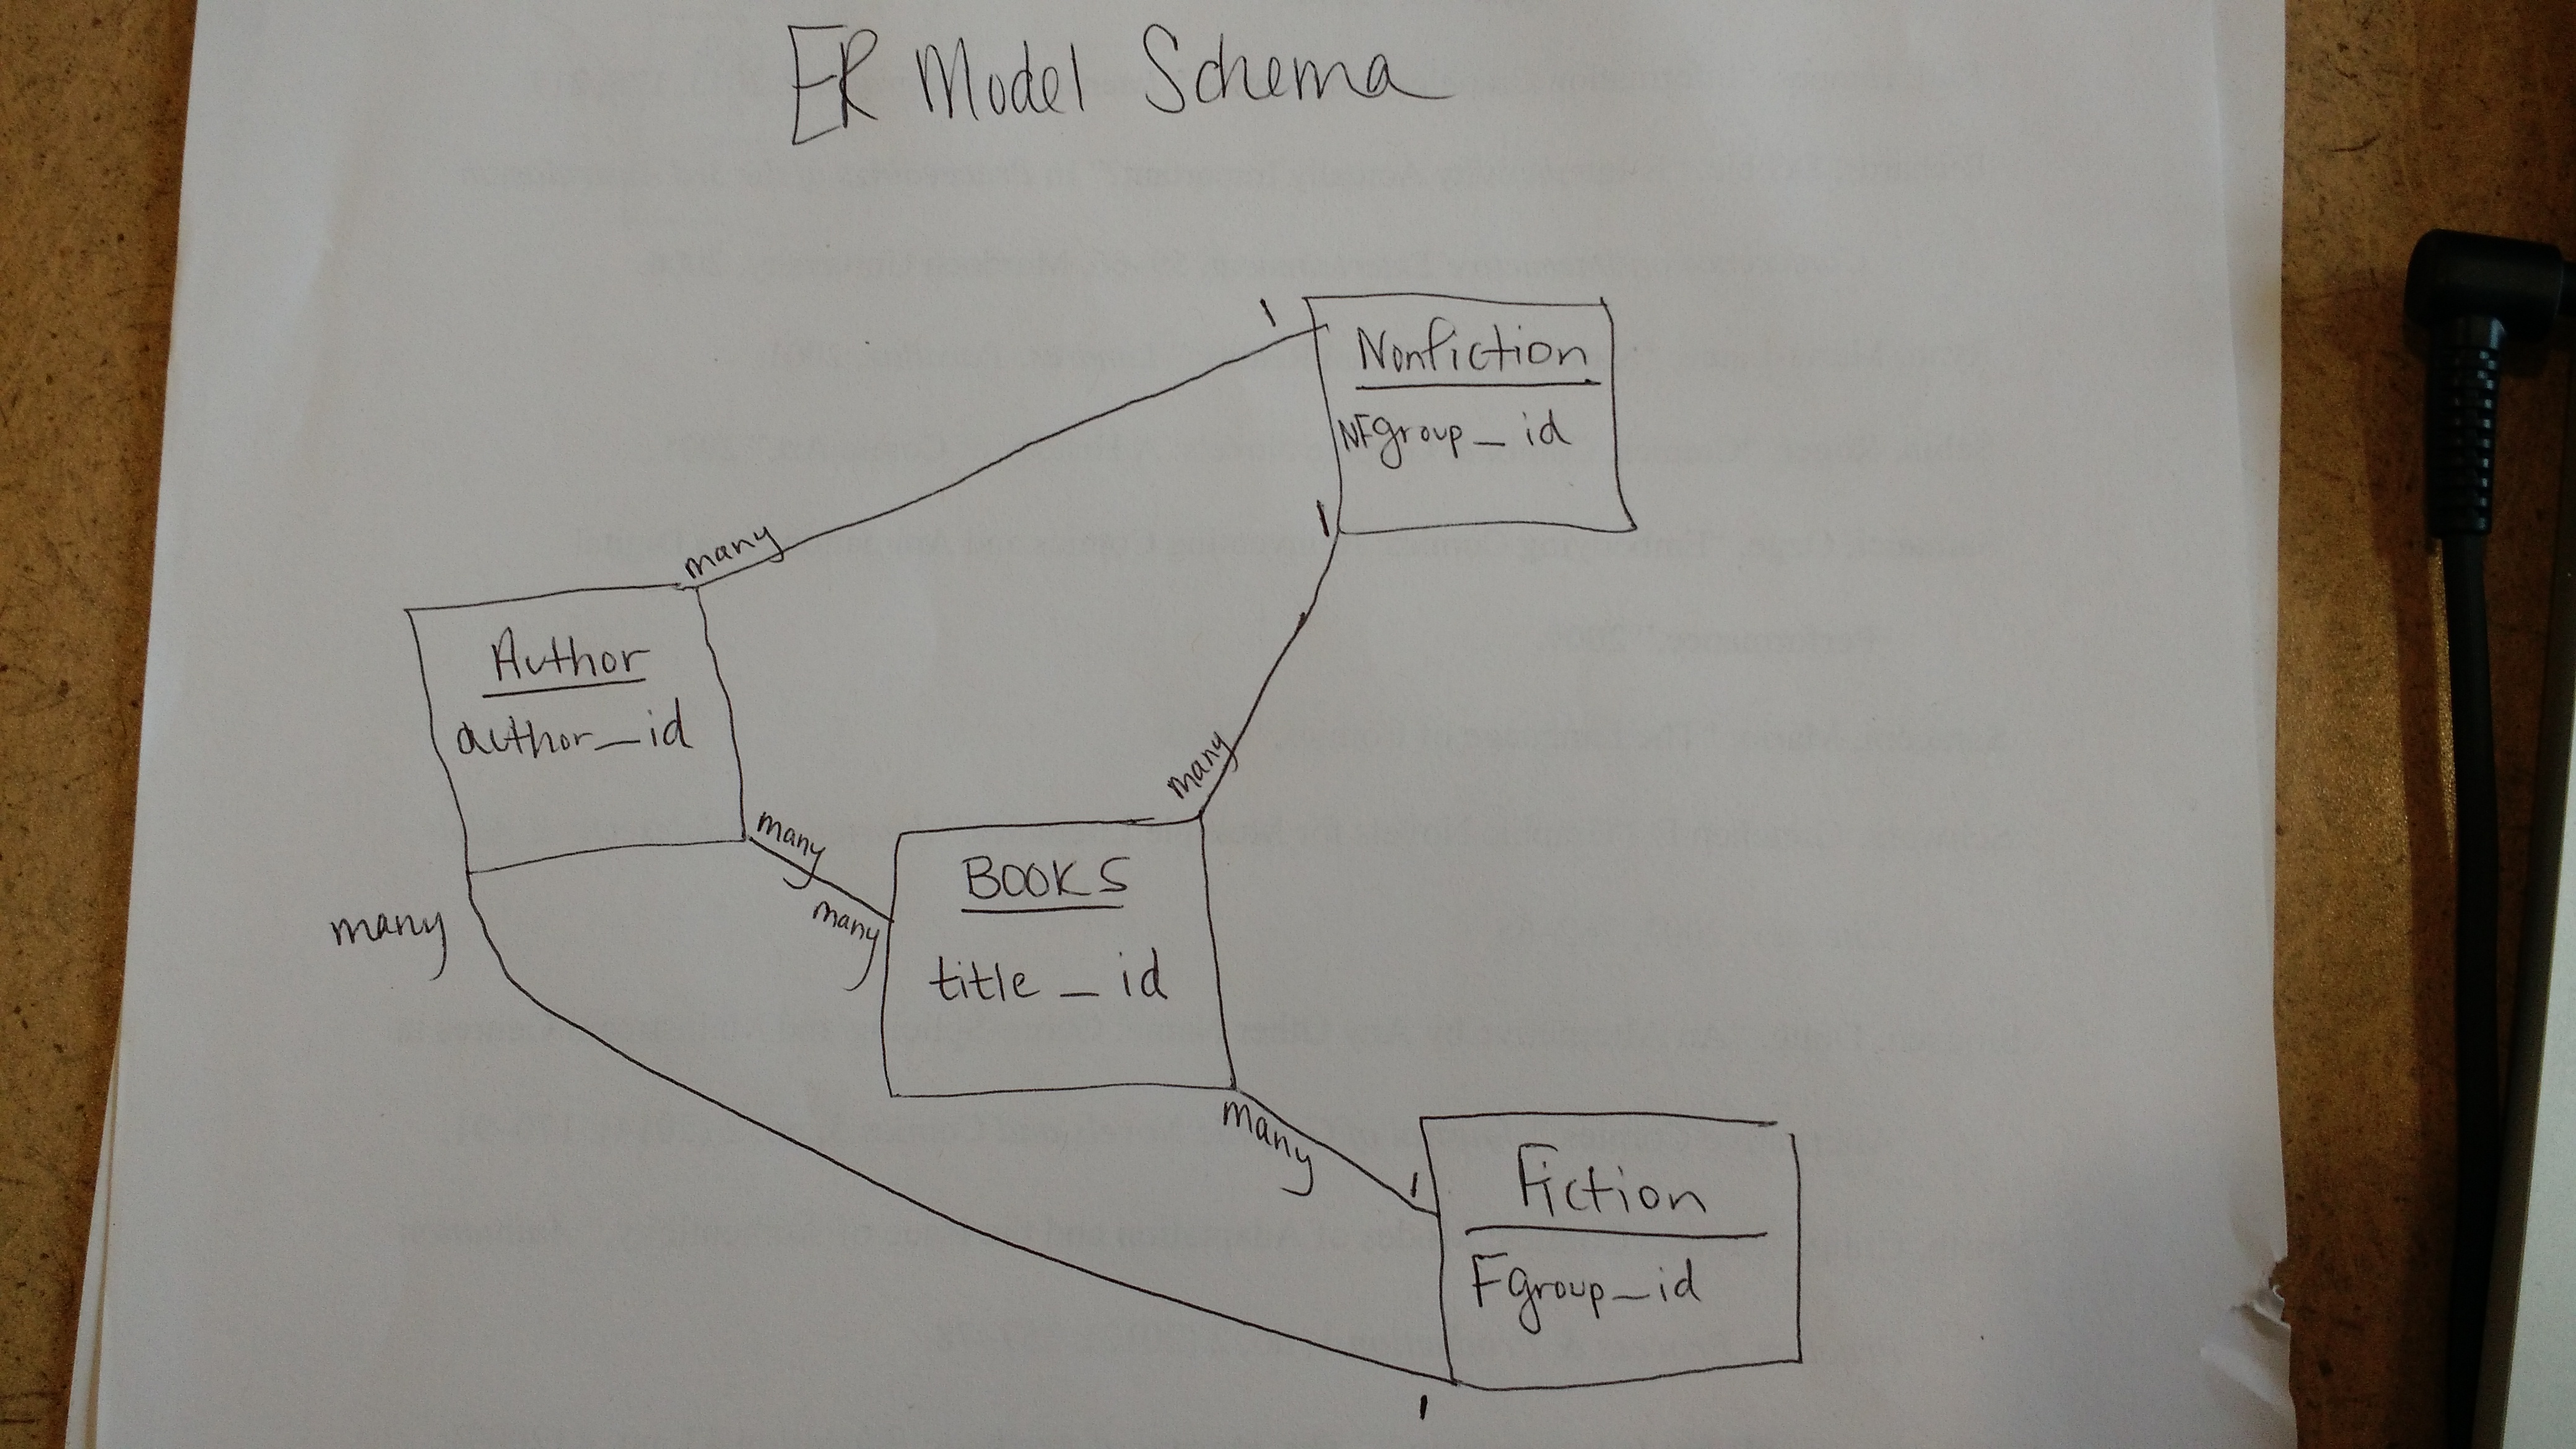 ER Model Schema
1
Nonfiction
NFgroup_id
1
many
Author
author_id
many
many
many
many
BOOKS
title_id
many
1
Fiction
Fgroup_id
1